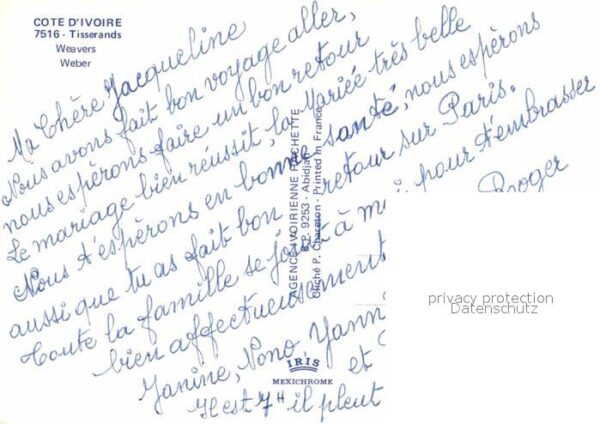 COTE D'IVOIRE
7516 - Tisserands
Weavers
Weber
Ma Chère Jacqueline
Nous avons fait bon voyage aller,
nous espérons faire un bon retour
Le mariage bien réussit, la Mariée très belle
Nous t'espérons en bonne santé, nous espérons
aussi que tu as fait bon retour sur Paris.
toute la famille se joint à m pour t'embrasser
bien affectueusement Roger
Janine, Nono Yann
et
Il est 7H il pleut
AGENCE IVOIRIENNE HACHETTE
B.P. 9253 - Abidjan
Cliché P. Chareton - Printed in France
IRIS
MEXICHROME
privacy protection
Datenschutz